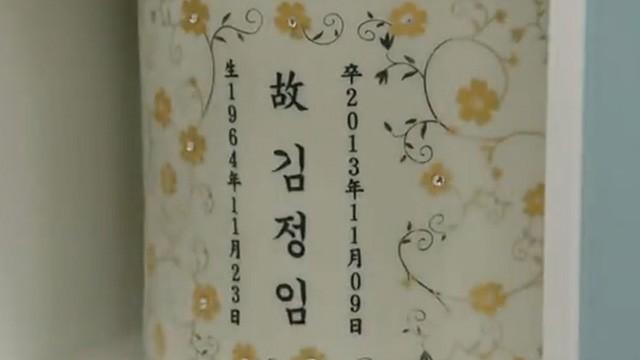 生1964年11月23日
故 김정임
卒2013年11月09日